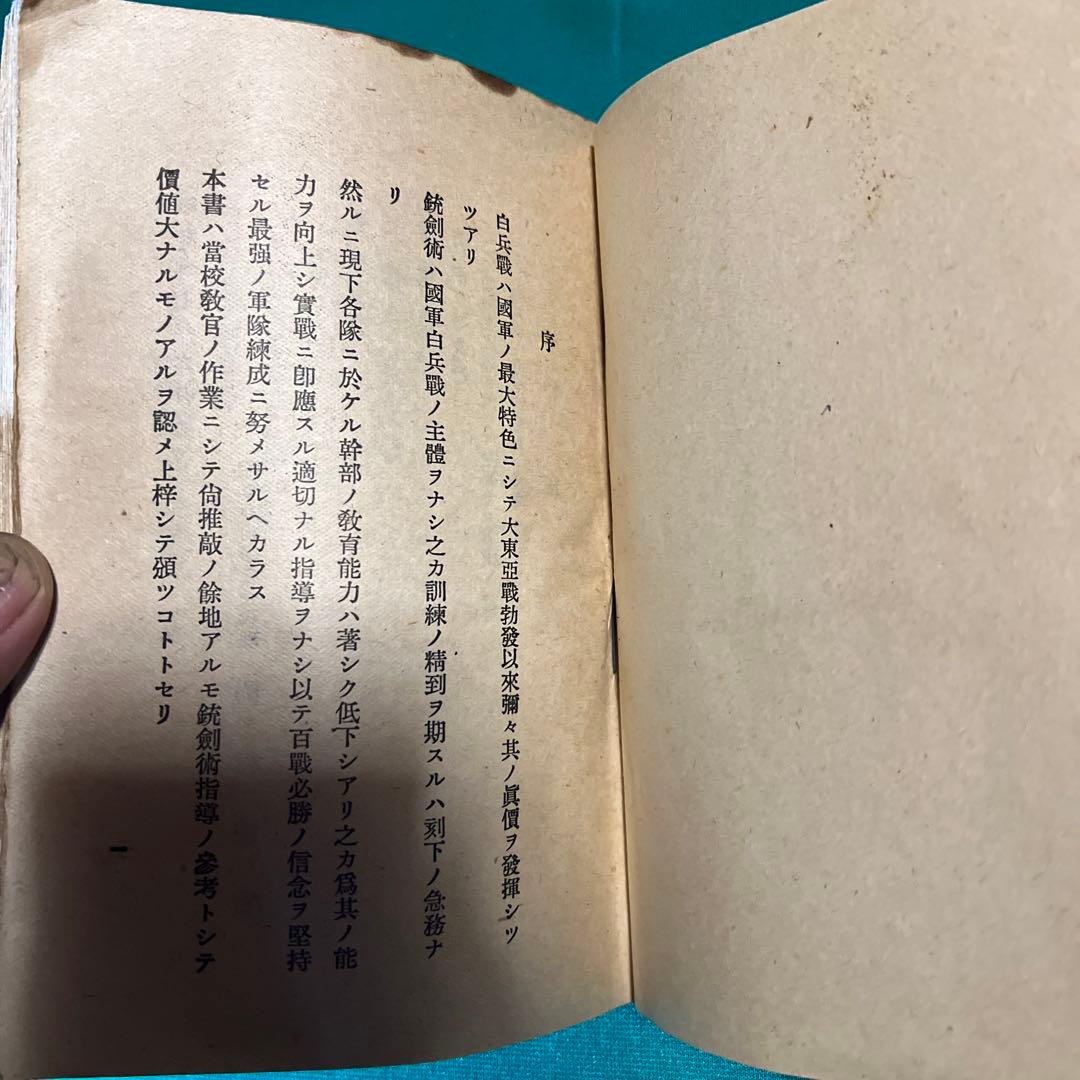 序
白兵戰ハ國軍ノ最大特色ニシテ大東亞戰勃發以來彌々其ノ眞價ヲ發揮シツ
ツアリ
銃劍術ハ國軍白兵戰ノ主體ヲナシ之カ訓練ノ精到ヲ期スルハ刻下ノ急務ナ
リ
然ルニ現下各隊ニ於ケル幹部ノ敎育能力ハ著シク低下シアリ之カ爲其ノ能
力ヲ向上シ實戰ニ卽應スル適切ナル指導ヲナシ以テ百戰必勝ノ信念ヲ堅持
セル最强ノ軍隊練成ニ努メサルヘカラス
本書ハ當校敎官ノ作業ニシテ尙推敲ノ餘地アルモ銃劍術指導ノ參考トシテ
價値大ナルモノアルヲ認メ上梓シテ頒ツコトトセリ
一